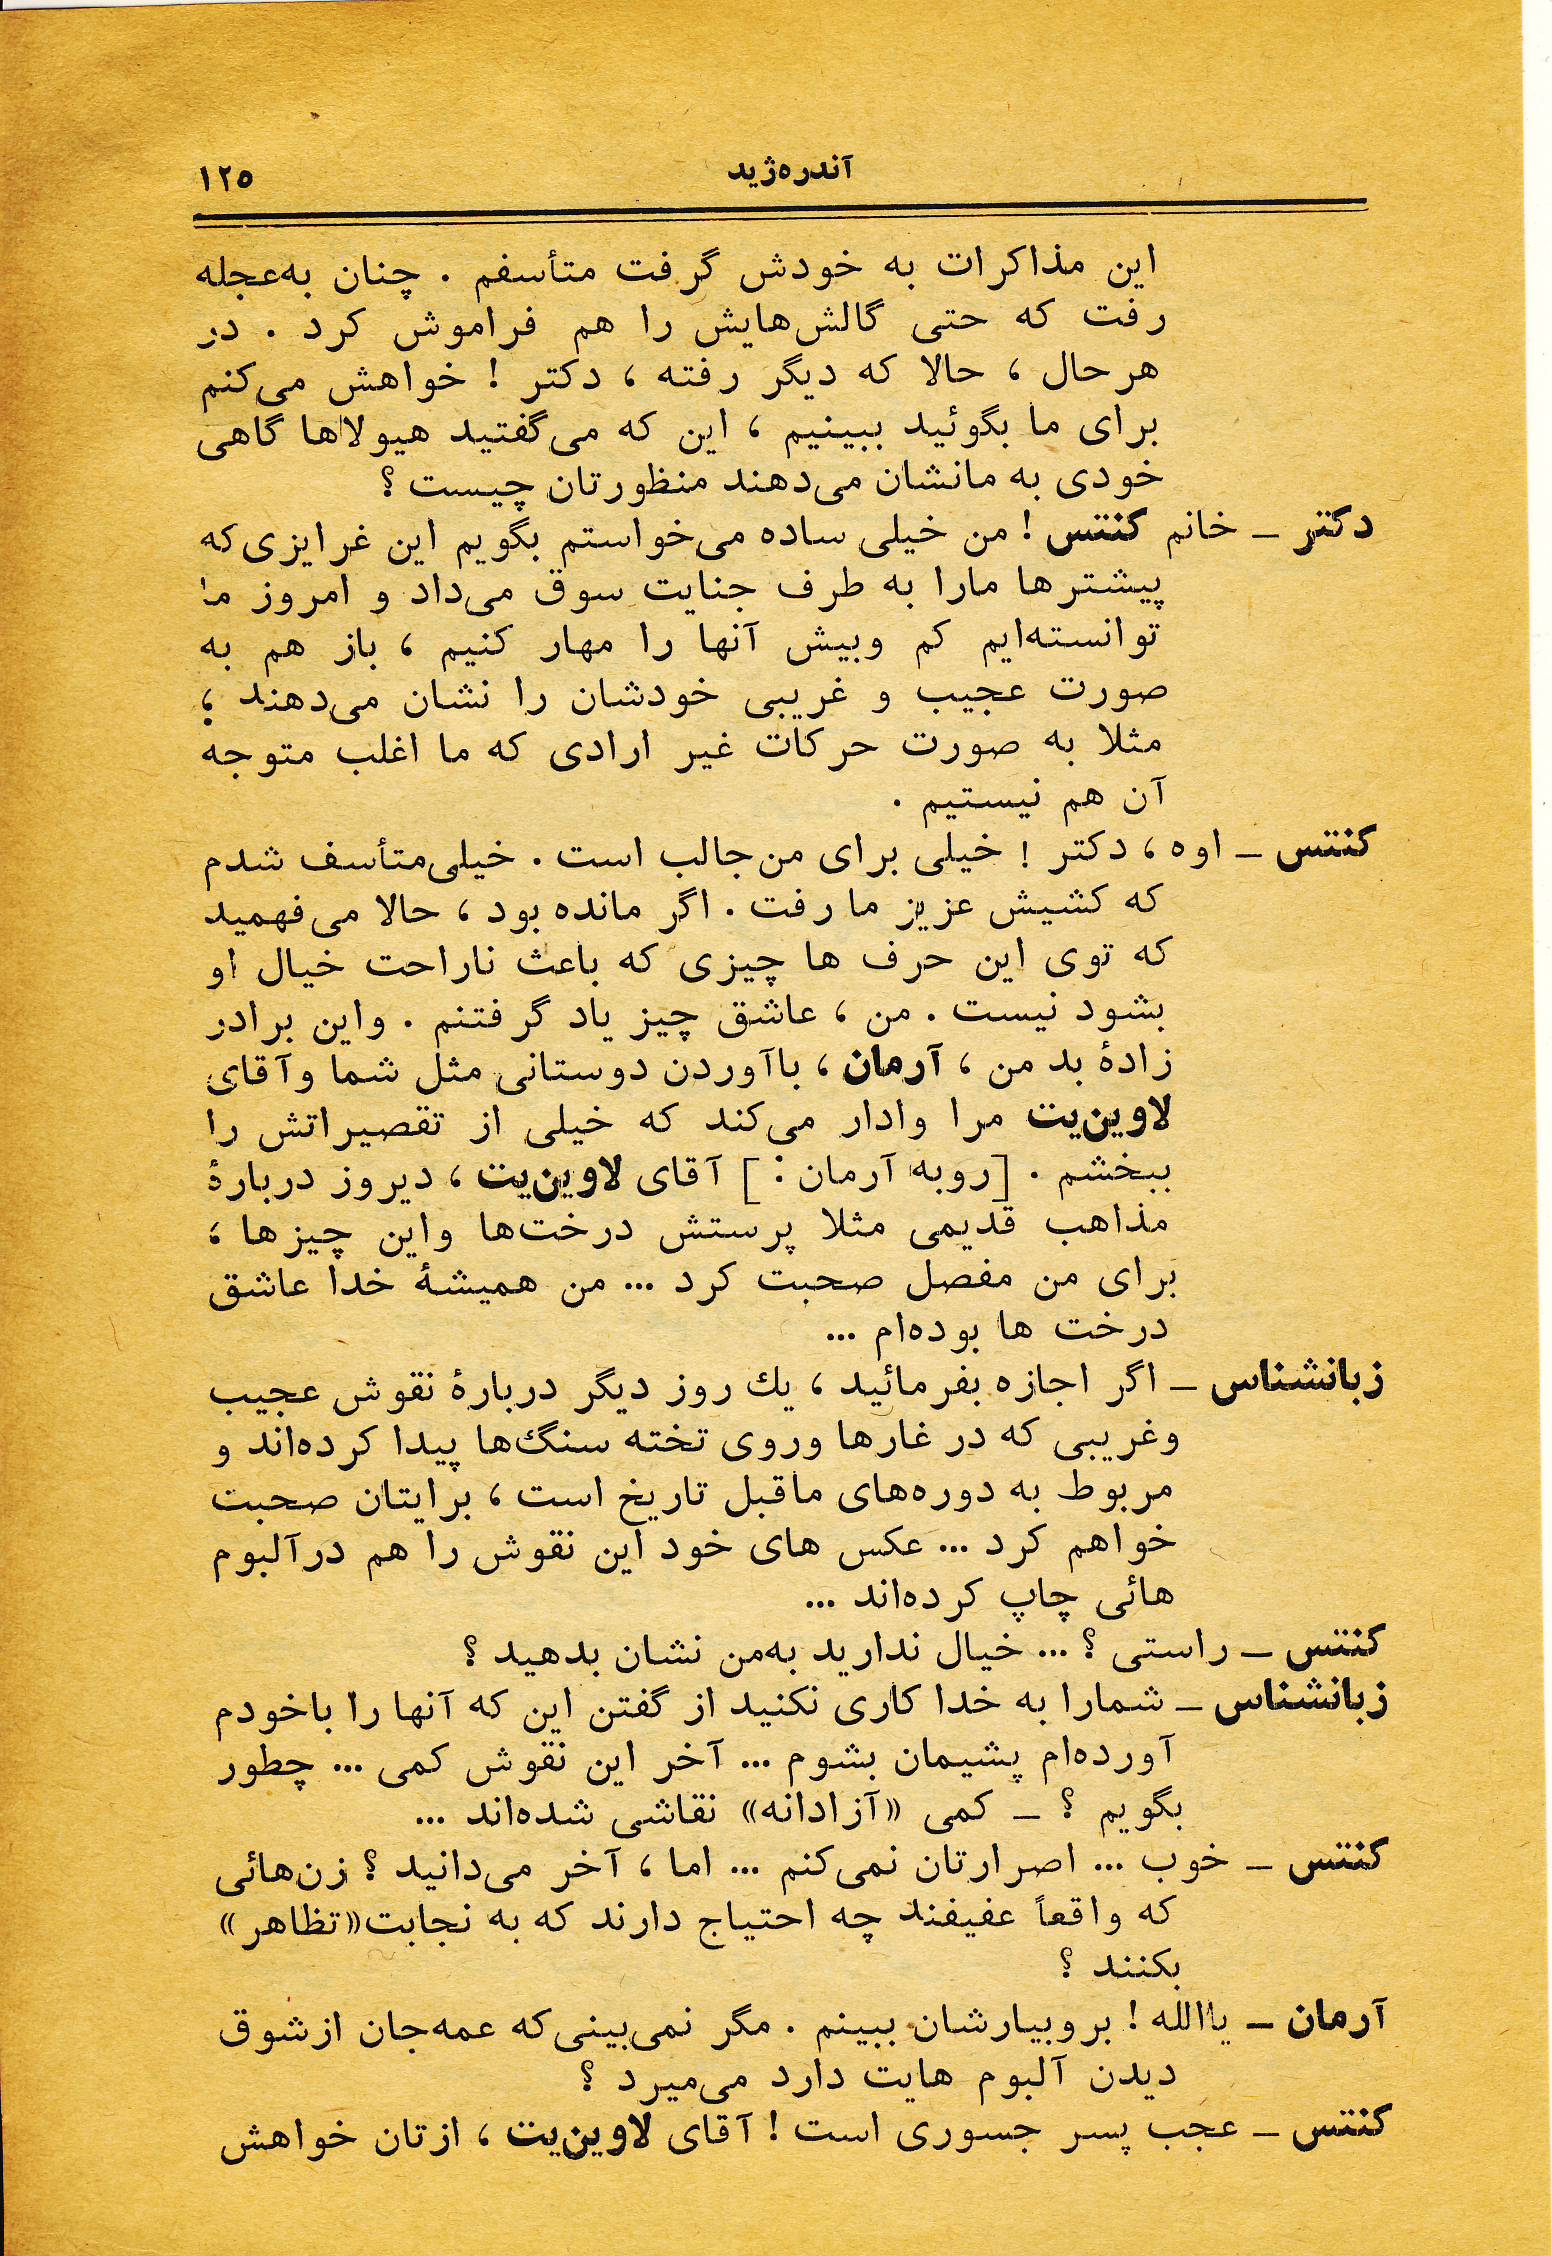 آندره‌ژید ۱۲۵
این مذاکرات به خودش گرفت متأسفم . چنان به‌عجله
رفت که حتی گالش‌هایش را هم فراموش کرد . در
هرحال ، حالا که دیگر رفته ، دکتر ! خواهش می‌کنم
برای ما بگوئید ببینیم ، این که می‌گفتید هیولاها گاهی
خودی به مانشان می‌دهند منظورتان چیست ؟
دکتر ـ خانم کنتس ! من خیلی ساده می‌خواستم بگویم این غرایزی‌که
پیشترها مارا به طرف جنایت سوق می‌داد و امروز ما
توانسته‌ایم کم وبیش آنها را مهار کنیم ، باز هم به
صورت عجیب و غریبی خودشان را نشان می‌دهند ؛
مثلا به صورت حرکات غیر ارادی که ما اغلب متوجه
آن هم نیستیم .
کنتس ـ اوه ، دکتر ! خیلی برای من‌جالب است . خیلی‌متأسف شدم
که کشیش عزیز ما رفت . اگر مانده بود ، حالا می‌فهمید
که توی این حرف ها چیزی که باعث ناراحت خیال او
بشود نیست . من ، عاشق چیز یاد گرفتنم . واین برادر
زادهٔ بد من ، آرمان ، باآوردن دوستانی مثل شما وآقای
لاوین‌یت مرا وادار می‌کند که خیلی از تقصیراتش را
ببخشم . [روبه آرمان : ] آقای لاوین‌یت ، دیروز دربارهٔ
مذاهب قدیمی مثلا پرستش درخت‌ها واین چیزها ،
برای من مفصل صحبت کرد ... من همیشهٔ خدا عاشق
درخت ها بوده‌ام ...
زبانشناس ـ اگر اجازه بفرمائید ، یك روز دیگر دربارهٔ نقوش عجیب
وغریبی که در غارها وروی تخته سنگ‌ها پیدا کرده‌اند و
مربوط به دوره‌های ماقبل تاریخ است ، برایتان صحبت
خواهم کرد ... عکس های خود این نقوش را هم درآلبوم
هائی چاپ کرده‌اند ...
کنتس ـ راستی ؟ ... خیال ندارید به‌من نشان بدهید ؟
زبانشناس ـ شمارا به خدا کاری نکنید از گفتن این که آنها را باخودم
آورده‌ام پشیمان بشوم ... آخر این نقوش کمی ... چطور
بگویم ؟ ـ کمی «آزادانه» نقاشی شده‌اند ...
کنتس ـ خوب ... اصرارتان نمی‌کنم ... اما ، آخر می‌دانید ؟ زن‌هائی
که واقعاً عفیفند چه احتیاج دارند که به نجابت«تظاهر»
بکنند ؟
آرمان ـ یاالله ! بروبیارشان ببینم . مگر نمی‌بینی‌که عمه‌جان ازشوق
دیدن آلبوم هایت دارد می‌میرد ؟
کنتس ـ عجب پسر جسوری است ! آقای لاوین‌یت ، ازتان خواهش